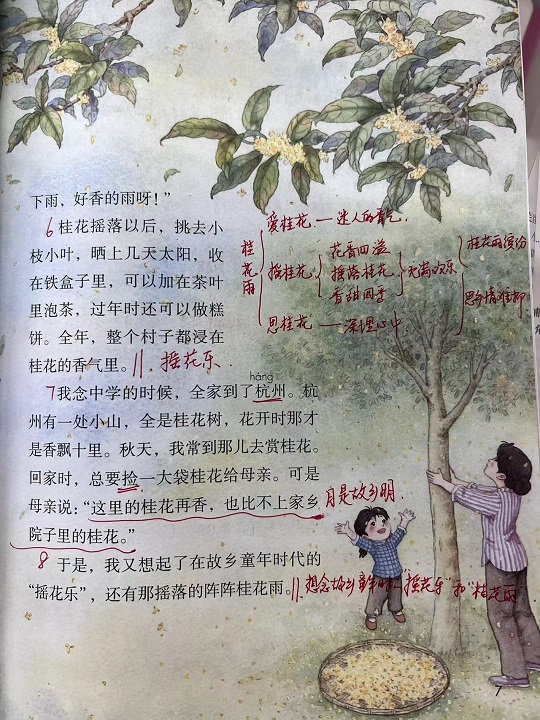 下雨，好香的雨呀！”
6 桂花摇落以后，挑去小
枝小叶，晒上几天太阳，收
在铁盒子里，可以加在茶叶
里泡茶，过年时还可以做糕
饼。全年，整个村子都浸在
桂花的香气里。 11. 摇花乐
桂花雨
爱桂花 — 迷人的香气
摇桂花
花香四溢
摇落桂花
香甜四季
充满欢乐
思桂花 — 深埋心中
桂花雨缤纷
思乡情难抑
háng
7 我念中学的时候，全家到了杭州。杭
州有一处小山，全是桂花树，花开时那才
是香飘十里。秋天，我常到那儿去赏桂花。
回家时，总要捡一大袋桂花给母亲。可是
母亲说：“这里的桂花再香，也比不上家乡
院子里的桂花。”
月是故乡明
8 于是，我又想起了在故乡童年时代的
“摇花乐”，还有那摇落的阵阵桂花雨。 11. 想念故乡童年时“摇花乐”和“桂花雨”
7